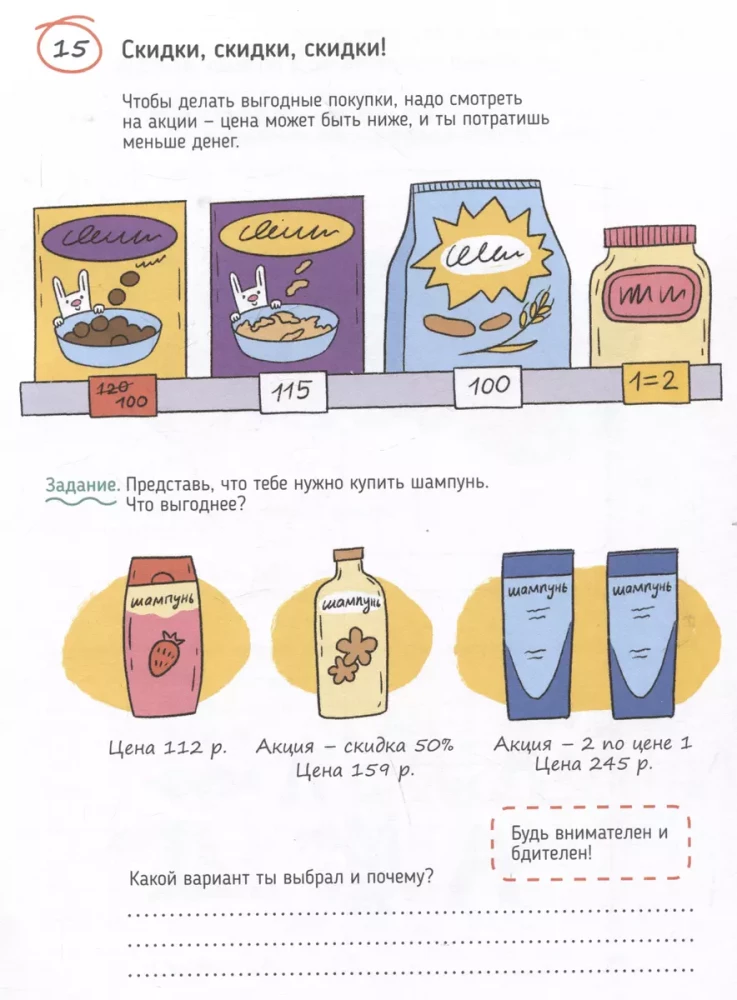 15
Скидки, скидки, скидки!
Чтобы делать выгодные покупки, надо смотреть
на акции – цена может быть ниже, и ты потратишь
меньше денег.
120
100
115
100
1=2
Задание. Представь, что тебе нужно купить шампунь.
Что выгоднее?
шампунь
шампунь
шампунь
шампунь
Цена 112 р.
Акция – скидка 50%
Цена 159 р.
Акция – 2 по цене 1
Цена 245 р.
Будь внимателен и
бдителен!
Какой вариант ты выбрал и почему?